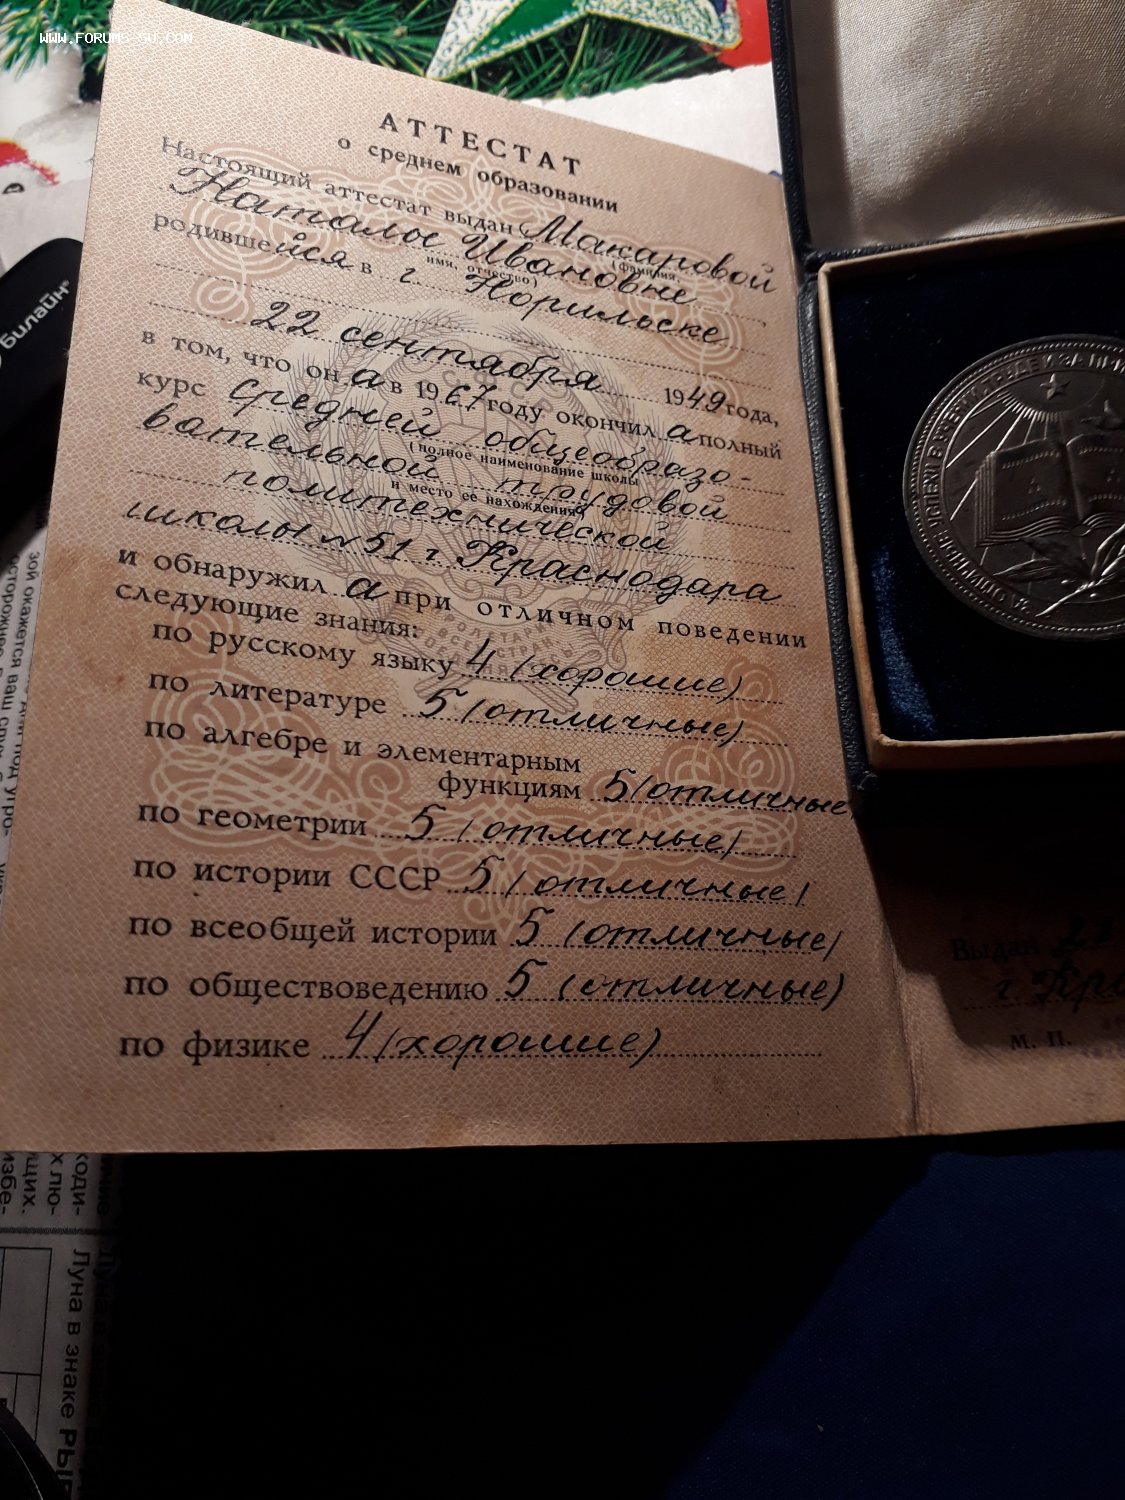 WWW.FORUMS-SU.COM
АТТЕСТАТ
о среднем образовании
Настоящий аттестат выдан Макаровой
(фамилия,
Наталье Ивановне
имя, отчество)
родившейся в г. Норильске
22 сентября 1949 года,
в том, что она в 1967 году окончила полный
курс средней общеобразо-
(полное наименование школы
вательной трудовой
и место ее нахождения)
политехнической
школы №51 г. Краснодара
и обнаружила при отличном поведении
следующие знания:
по русскому языку 4 (хорошие)
по литературе 5 (отличные)
по алгебре и элементарным
функциям 5 (отличные)
по геометрии 5 (отличные)
по истории СССР 5 (отличные)
по всеобщей истории 5 (отличные)
по обществоведению 5 (отличные)
по физике 4 (хорошие)
Выдан
г. Кра
М. П.
ЗА ОТЛИЧНЫЕ УСПЕХИ В УЧЕНИИ ТРУДЕ И ЗА ПРИ
билайн
Луна в знаке РЫ